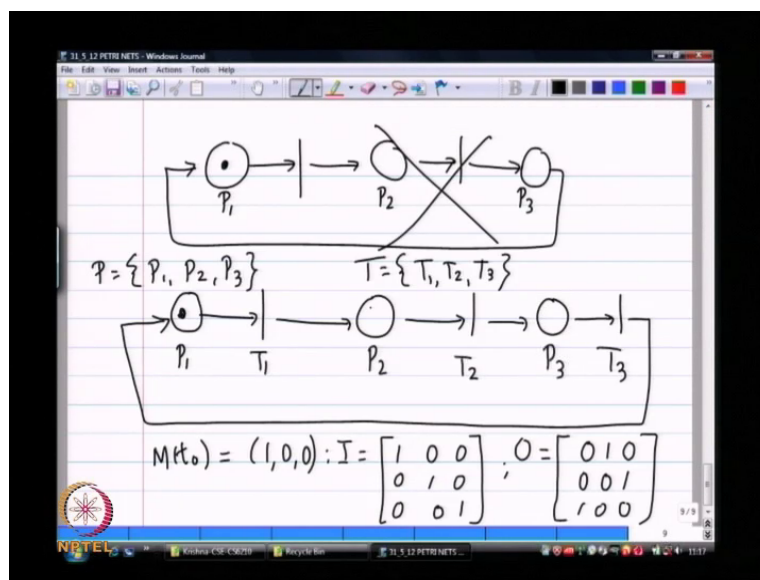 31_5_12 PETRI NETS - Windows Journal
File Edit View Insert Actions Tools Help
B I
P₁ P₂ P₃
P = {P₁, P₂, P₃} T = {T₁, T₂, T₃}
P₁ T₁ P₂ T₂ P₃ T₃
M(t₀) = (1,0,0) : I = [1 0 0 ; O = [0 1 0
0 1 0 0 0 1
0 0 1] 1 0 0]
9/9
9
NPTEL
Krishna-CSE-CS6210 Recycle Bin 31_5_12 PETRI NETS ... 11:17